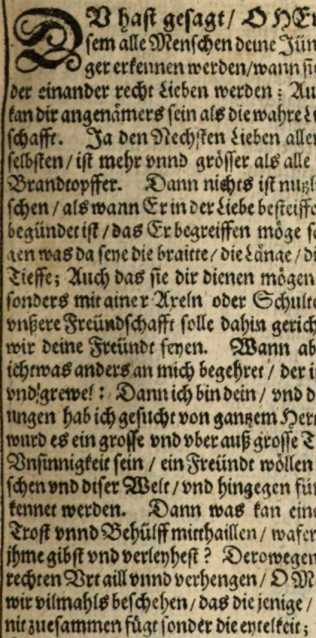 DV hast gesagt / O HEr
sem alle Menschen deine Jün
ger erkennen werden / wann sie
der einander recht Lieben werden: Au
kan dir angenämers sein als die wahre Li
schafft. Ja den Nechsten Lieben aller
selbsten / ist mehr vnnd grösser als alle
Brandtopffer. Dann nichts ist nutzl
schen / als wann Er in der Liebe besteiffe
begündet ist / das Er begreiffen möge s
gen was da seye die braitte / die Länge / di
Tieffe; Auch das sie dir dienen mögen
sonders mit ainer Axeln oder Schulte
vnßere Freündschafft solle dahin gerich
wir deine Freündt seyen. Wann ab
ichtwas anders an mich begehret / der i
vnd grewel: Dann ich bin dein / vnd d
ungen hab ich gesucht von gantzem Her
wurd es ein grosse vnd vber auß grosse T
Vnsinnigkeit sein / ein Freündt wöllen
schen vnd diser Welt / vnd hingegen für
kennet werden. Dann was kan eine
Trost vnnd Behülff mitthaillen / wafer
ihme gibst vnd verleyhest? Derowegen
rechten Vrtaill vnnd verhengen / O M
wir vilmahls beschehen / das die jenige /
nit zuesammen fügt sonder die eytelkeit;